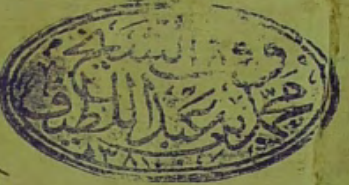 وقف الشيخ
محمد بن عبد اللطيف